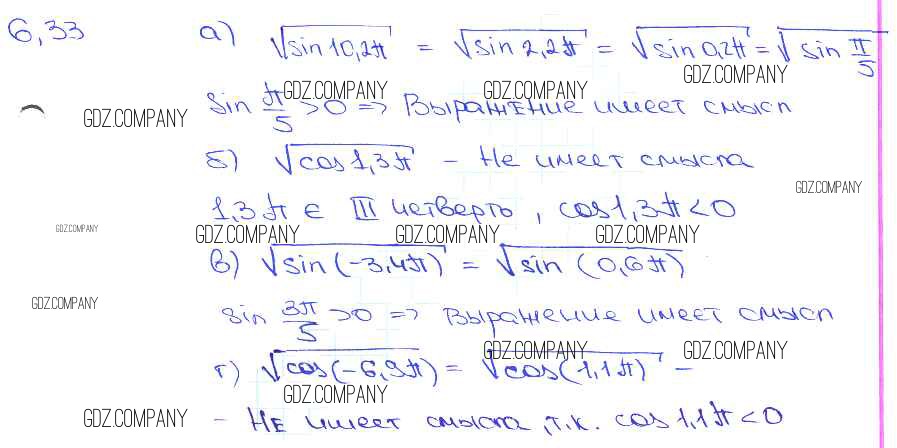 6,33 а) √sin 10,2π = √sin 2,2π = √sin 0,2π = √sin π/5
GDZ.COMPANY GDZ.COMPANY GDZ.COMPANY
sin π/5 >0 => Выражение имеет смысл
GDZ.COMPANY
б) √cos 1,3π – Не имеет смысла
GDZ.COMPANY
1,3π ∈ III четверть, cos 1,3π < 0
GDZ.COMPANY GDZ.COMPANY GDZ.COMPANY GDZ.COMPANY
в) √sin (-3,4π) = √sin (0,6π)
GDZ.COMPANY
sin 3π/5 >0 => Выражение имеет смысл
GDZ.COMPANY GDZ.COMPANY
г) √cos(-6,9π) = √cos(1,1π) –
GDZ.COMPANY
GDZ.COMPANY
– Не имеет смысла, т.к. cos 1,1π < 0